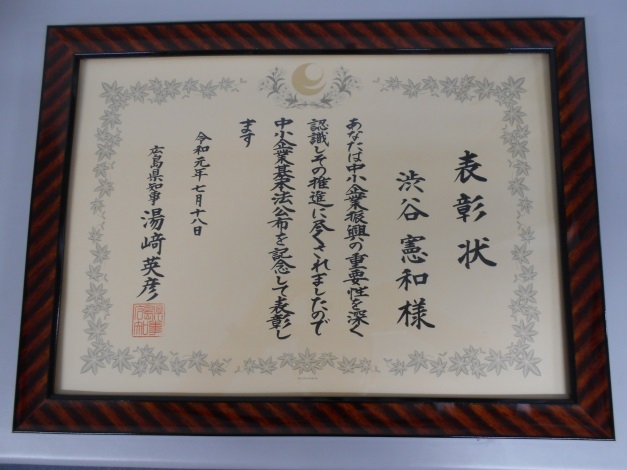 表彰状
渋谷憲和様
あなたは中小企業振興の重要性を深く
認識しその推進に尽くされましたので
中小企業基本法公布を記念して表彰し
ます
令和元年七月十八日
広島県知事 湯﨑英彦